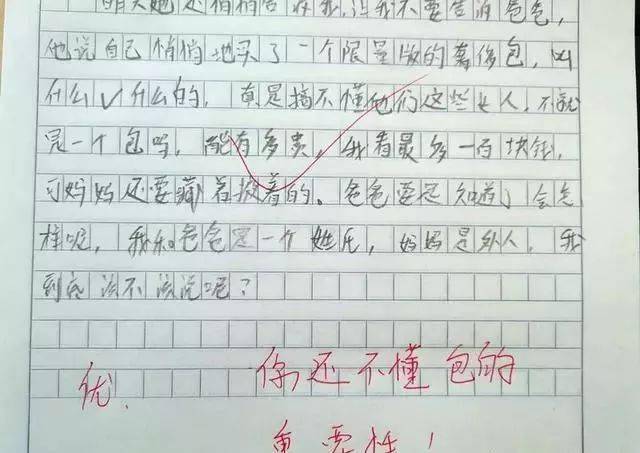 明天她还悄悄告诉我,让我不要告诉爸爸,
他说自己悄悄地买了一个限量版的奢侈包,叫
什么V什么的,真是搞不懂他们这些女人,不就
是一个包吗,能有多贵,我看最多一百块钱,
可妈妈还要藏着掖着的。爸爸要是知道了会怎
样呢,我和爸爸是一个姓氏,妈妈是外人,我
到底该不该说呢?
优.
你还不懂包的
重要性!